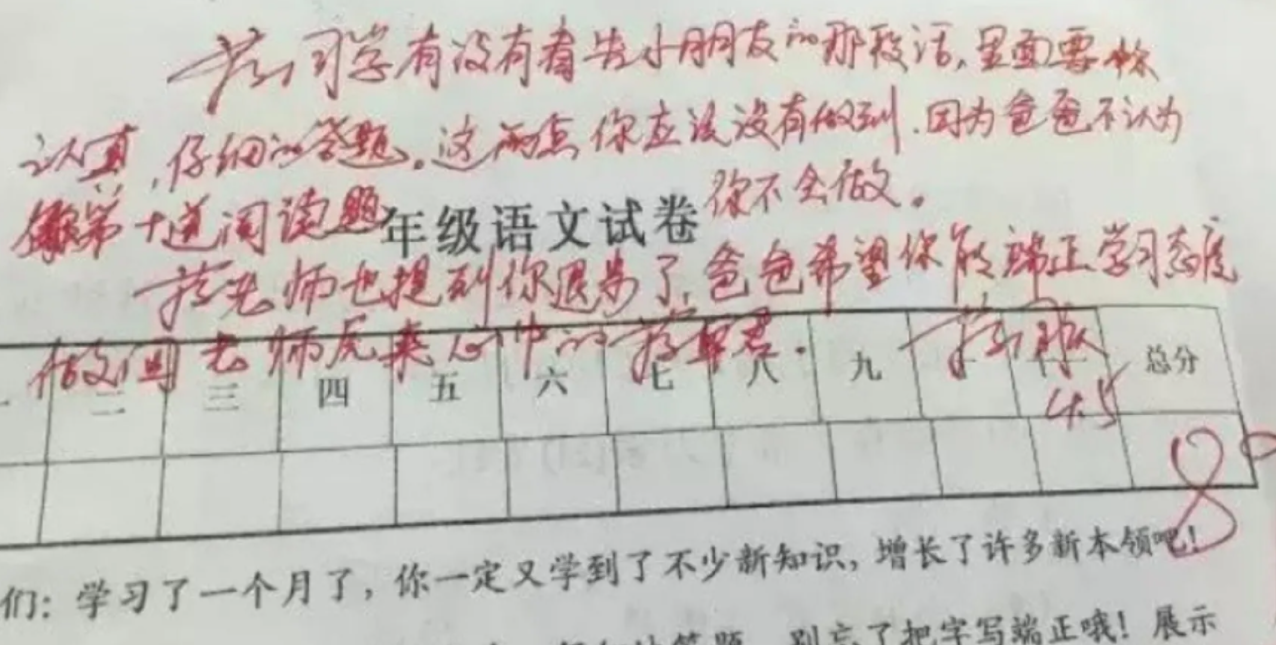 蒋同学有没有看告小朋友的那段话,里面要你
认真,仔细的答题。这两点你应该没有做到.因为爸爸不认为
第十道阅读题你不会做。
年级语文试卷
蒋老师也提到你退步了,爸爸希望你能端正学习态度
做回老师原来心中的蒋
二 三 四 五 六 七 八 九 总分
4.5
8
们:学习了一个月了,你一定又学到了不少新知识,增长了许多新本领吧!
答题 别忘了把字写端正哦!展示